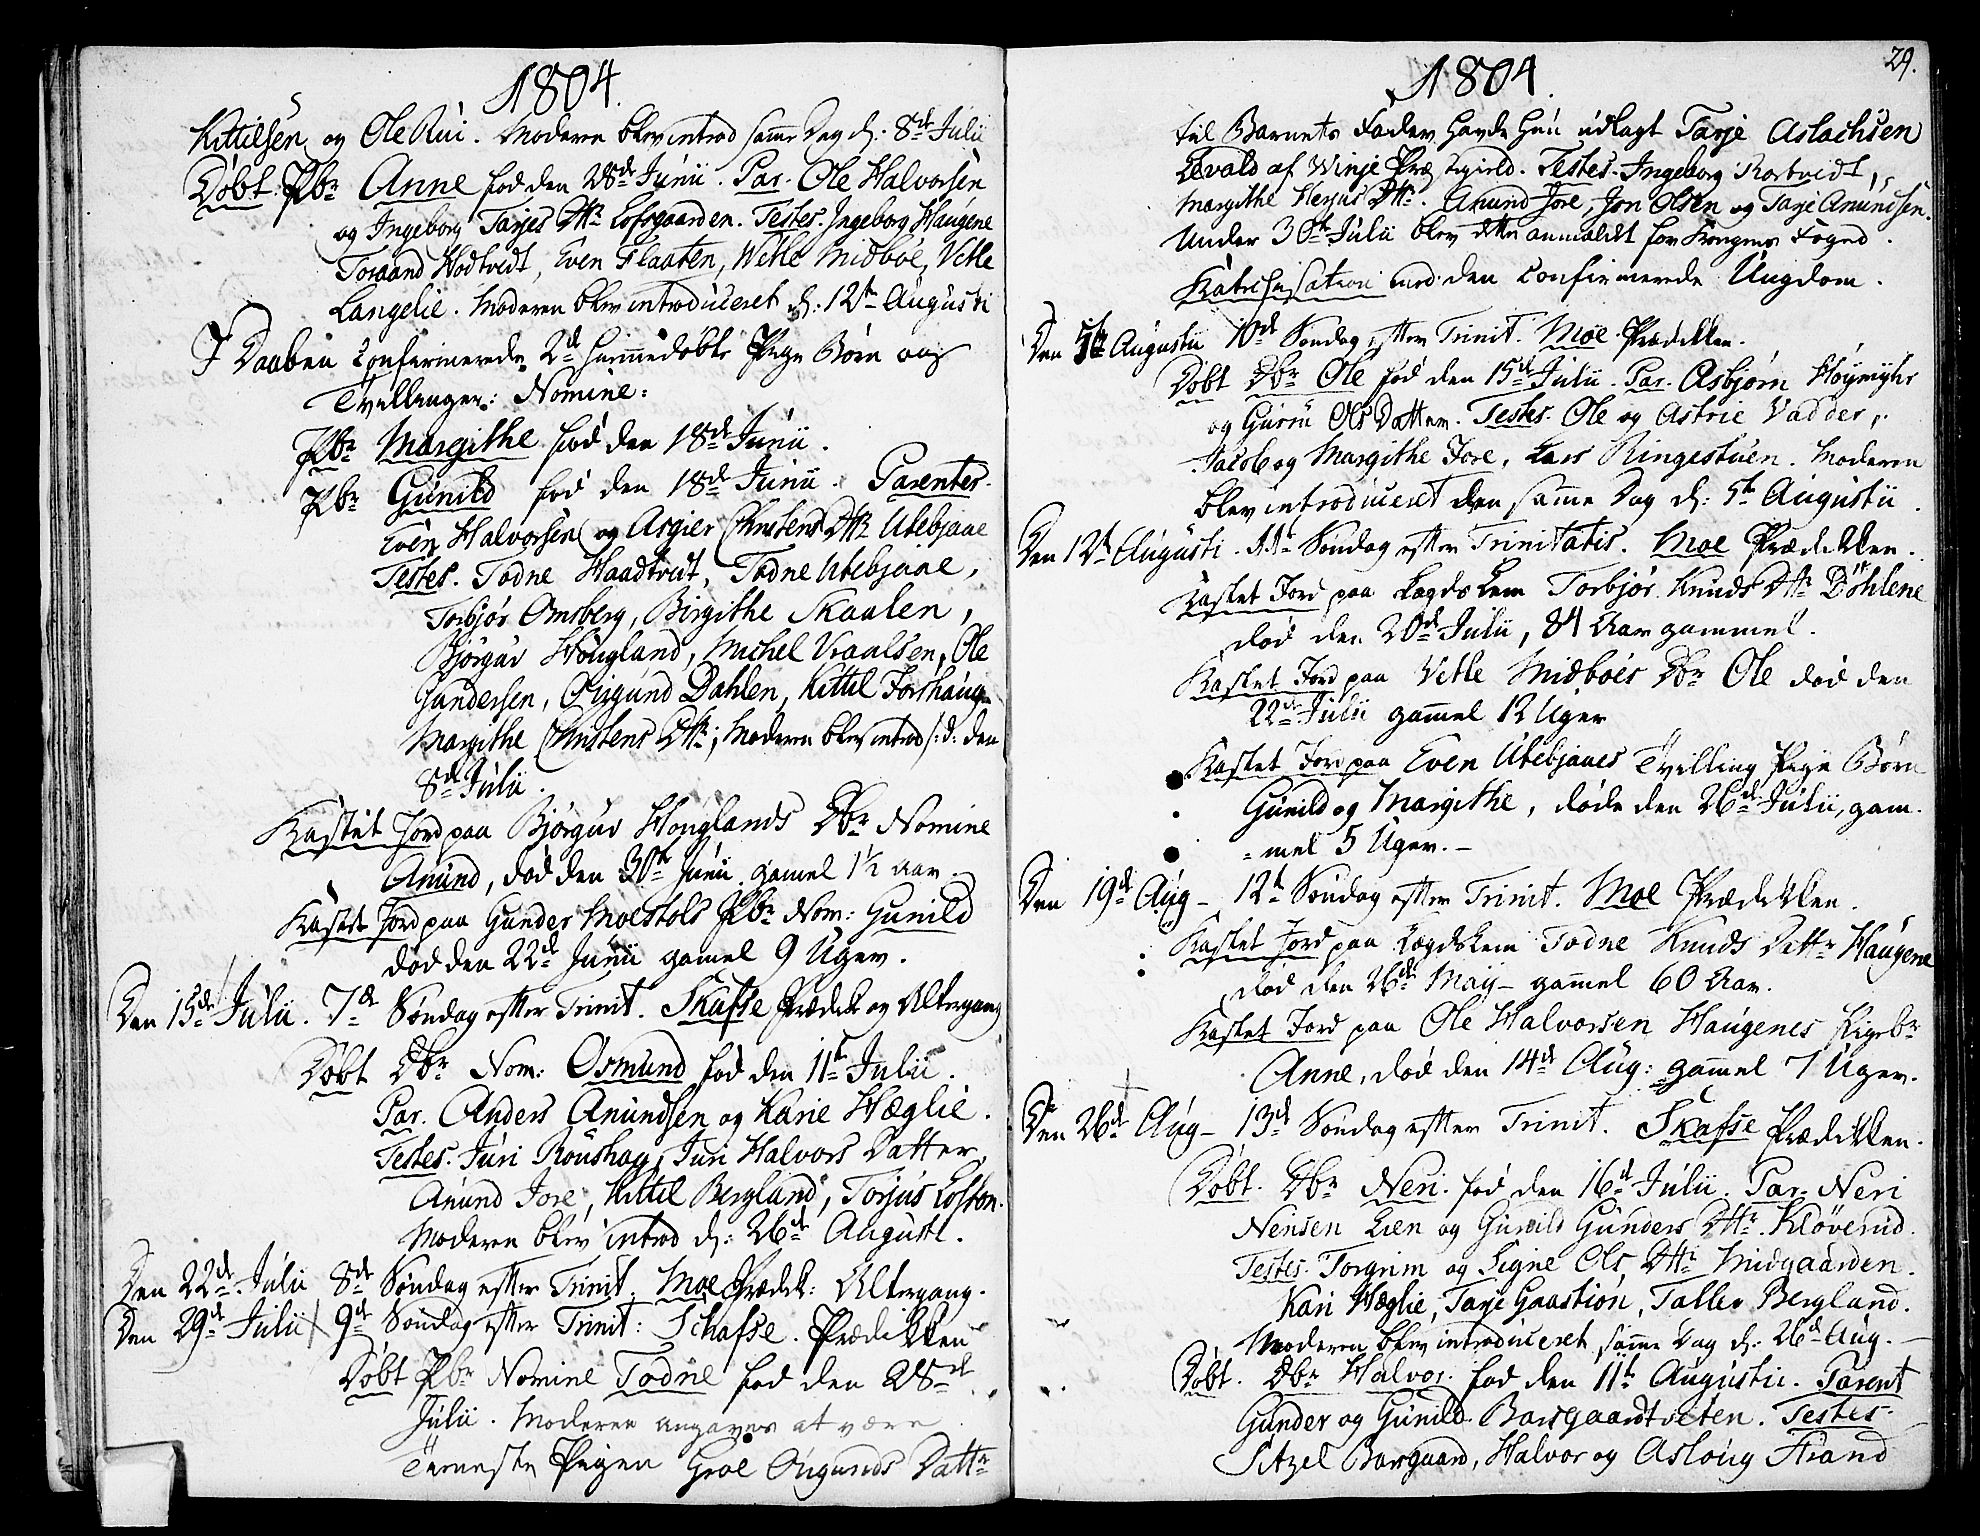 1804.
Kittilsen og Ole Rui. Moderen blev introd samme Dag d: 8de Julii
Döbt Pbr Anne fød den 28de Junii. Par. Ole Halvorsen
og Ingeborg Tarjes Dttr Lofsgaarden. Testes. Ingeborg Haugene
Toraand Hodtvedt, Even Flaaten, Wetle Midböe, Vetle
Langelie. Moderen blev introduceret d: 12te Augusti
I Daaben Confirmerede 2de hjemmedøbte Pige Børn og
Tvillinger: Nomine:
Pbr Margithe fød den 18de Junii.
Pbr Gunild fød den 18de Junii. Parentes.
Even Halvorsen og Asgier Christens Dttr Utebjaae
Testes. Todne Haadtveit, Todne Utebjaae,
Torbjör Omsberg, Birgithe Skaalen,
Björguv Hougland, Michel Vraalsen, Ole
Gundersen, Oigund Dahlen, Kittil Forshaug
Margithe Christens Dttr; Moderen blev introd d: den
8de Julii.
Kastet Jord paa Björguv Houglands Dbr Nomine
Anund, død den 30te Junii gamel 1½ aar.
Kastet Jord paa Gunder Moestols Pbr Nom: Gunild
død den 22de Junii gamel 9 Uger.
Den 15de Julii. 7de Søndag efter Trinit. Skafse Prædek og Altergang
Döbt Dbr Nom: Osmund fød den 11te Julii.
Par. Anders Anundsen og Karie Hæglie.
Testes. Juri Roushag, Juri Halvors Datter,
Anund Jore, Kittil Bergland, Torjus Lofton.
Moderen blev introd d: 26de Augusti.
Den 22de Julii 8de Søndag efter Trinit. Moe Prædek: Altergang.
Den 29de Julii 9de Søndag efter Trinit: Schafse. Prædikken
Döbt Pbr Nomine Todne fød den 28de
Julii. Moderen angaves at være
Tieneste Pigen Groe Oigunds Dattr
29.
1804.
til Barnets Fader havde hun udlagt Tarje Aslachsen
Levald af Winje Præstegield. Testes. Ingeborg Rortvedt,
Margithe Herjus Dttr. Anund Jore, Jon Olsen og Tarje Anundsen.
Under 30te Julii blev dette anmældet for Kongens Foged.
Katechisation med den Confirmerede Ungdom.
Den 5te Augustii 10de Søndag efter Trinit. Moe Prædikken.
Döbt Dbr Ole fød den 15de Julii. Par. Asbjörn Höymyhr
og Guroe Ols Datter. Testes. Ole og Astrie Vadder,
Jacob og Margithe Jore, Lars Ringestuen. Moderen
blev introduceret den samme Dag d: 5te Augustii
Den 12te Augusti. 11te Søndag efter Trinitatis. Moe Prædikken.
Kastet Jord paa Lægds Lem Torbjör Knuds Dttr Döhlene
død den 20de Julii, 84 Aar gammel.
Kastet Jord paa Vetle Midböes Dbr Ole død den
22de Julii gammel 12 Uger
Kastet Jord paa Even Utebjaaes Tvilling Pige Børn
Gunild og Margithe, døde den 26de Julii, gam-
=mel 5 Uger.-
Den 19de Aug- 12te Søndag efter Trinit. Moe Prædikken.
Kastet Jord paa Lægdslem Todne Knuds Dattr Haugene
død den 26de May- gammel 60 Aar.
Kastet Jord paa Ole Halvorsen Haugenes Pigebr
Anne, død den 14de Aug: gammel 7 Uger.
Den 26de Aug- 13de Søndag efter Trinit. Skafse Prædikken.
Döbt. Dbr Neri. fød den 16de Julii. Par. Neri
Nensen Lien og Gunild Gunders Dttr. Klöverud.
Testes. Torgrim og Signe Ols Dttr Midgaarden.
Kari Hæglie, Tarje Gaastion, Tallev Bergland.
Moderen blev introduceret samme Dag d: 26de Aug.
Döbt. Dbr Halvor. fød den 11te Augustii. Parent
Gunder og Gunild Barsgaardtveten. Testes.
Sitzel Borgaard, Halvor og Asloug Strand